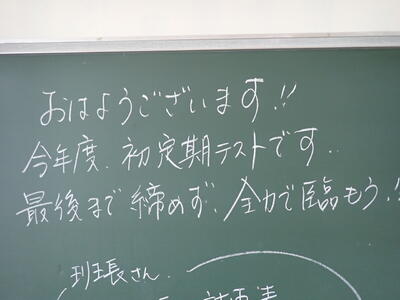 おはようございます!!
今年度、初定期テストです..
最後まで締めず、全力で臨もう!!
班長さん.